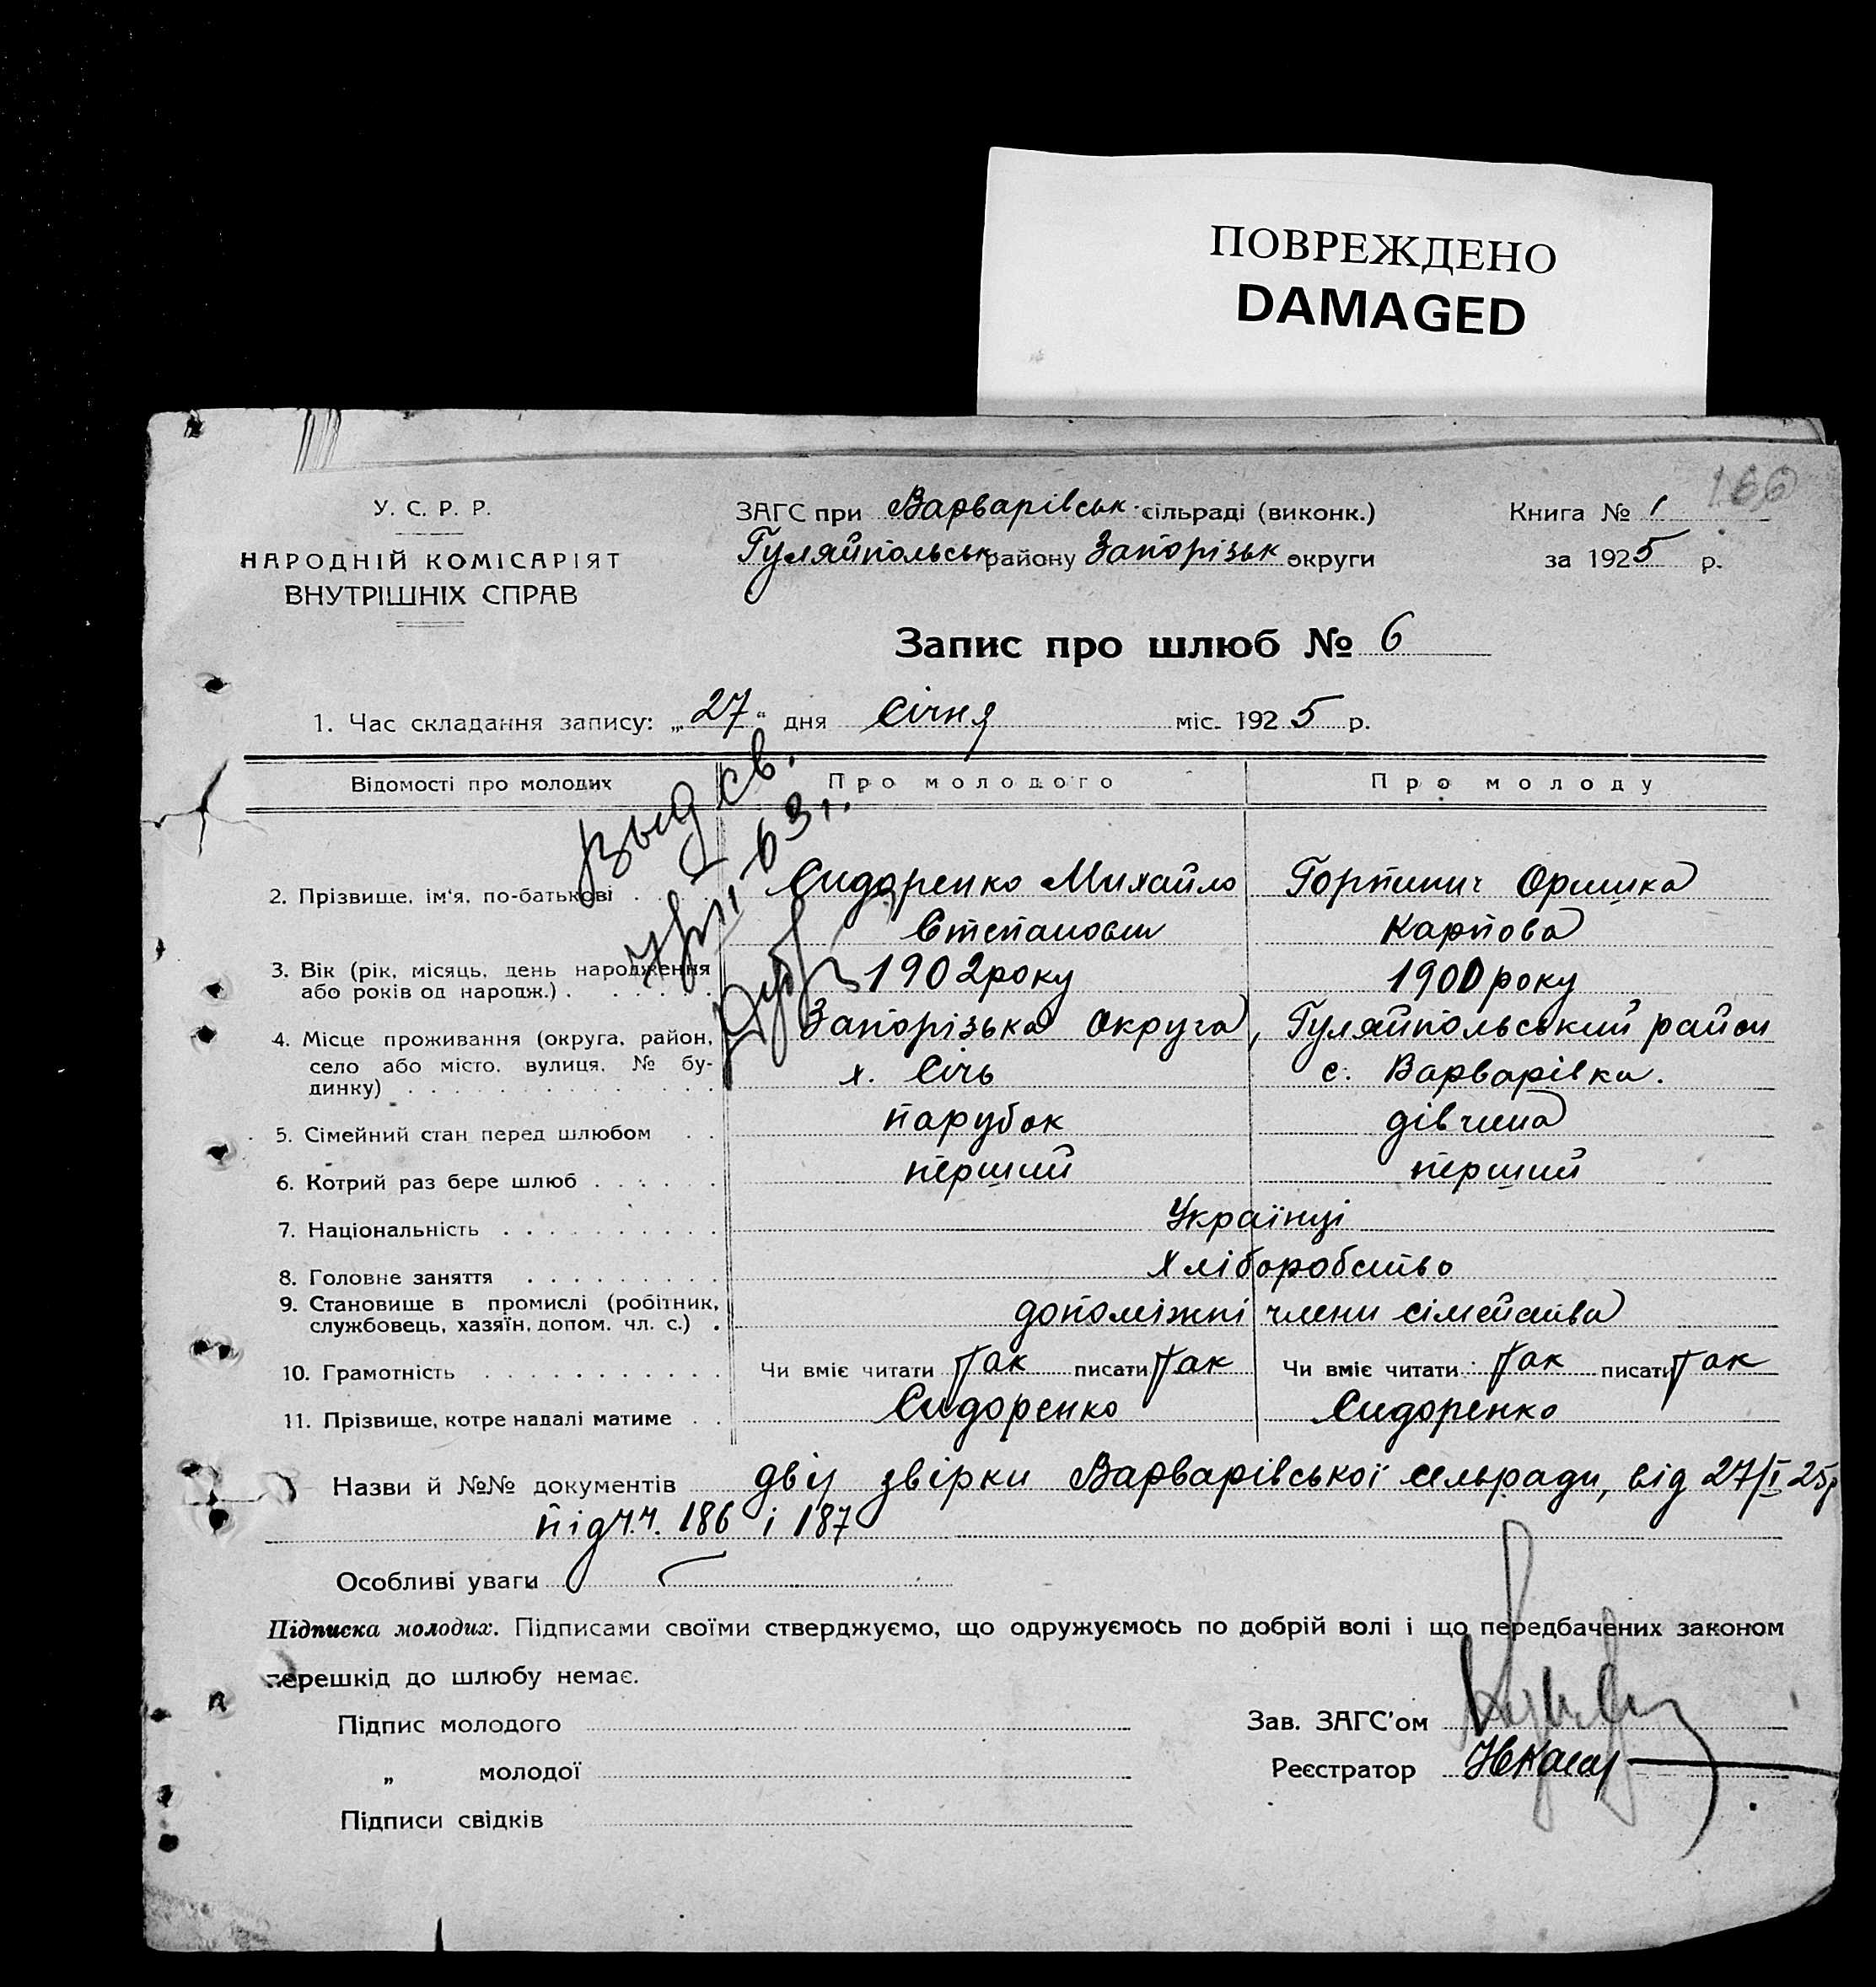 ПОВРЕЖДЕНО
DAMAGED
166
У. С. Р. Р.
НАРОДНІЙ КОМІСАРІЯТ
ВНУТРІШНІХ СПРАВ
ЗАГС при Варварівськ. сільраді (виконк.)
Гуляйпольськ району Запорізьк округи
Книга № 1
за 1925 р.
Запис про шлюб № 6
1. Час складання запису: „27“ дня Січня міс. 1925 р.
Відомості про молодих Про молодого Про молоду
Выд св.
63 г.
2. Прізвище, ім'я, по-батькові Сидоренко Михайло Горпинич Оришка
Степанович Карпова
3. Вік (рік, місяць, день народження 1902 року 1900 року
або років од народж.)
4. Місце проживання (округа, район, Запорізька Округа, Гуляйпольський район
село або місто, вулиця, № бу- х. Січь с. Варварівка.
динку)
5. Сімейний стан перед шлюбом парубок дівчина
6. Котрий раз бере шлюб перший перший
7. Національність Українці
8. Головне заняття Хліборобство
9. Становище в промислі (робітник, допоміжні члени сімейства
службовець, хазяїн, допом. чл. с.)
10. Грамотність Чи вміє читати Так писати Так Чи вміє читати Так писати Так
11. Прізвище, котре надалі матиме Сидоренко Сидоренко
Назви й №№ документів дві звірки Варварівської сельради, від 27/I 25р
під ч.ч. 186 і 187
Особливі уваги
Підписка молодих. Підписами своїми стверджуємо, що одружуємось по добрій волі і що передбачених законом
перешкід до шлюбу немає.
Підпис молодого
„ молодої
Підписи свідків
Зав. ЗАГС'ом
Реєстратор